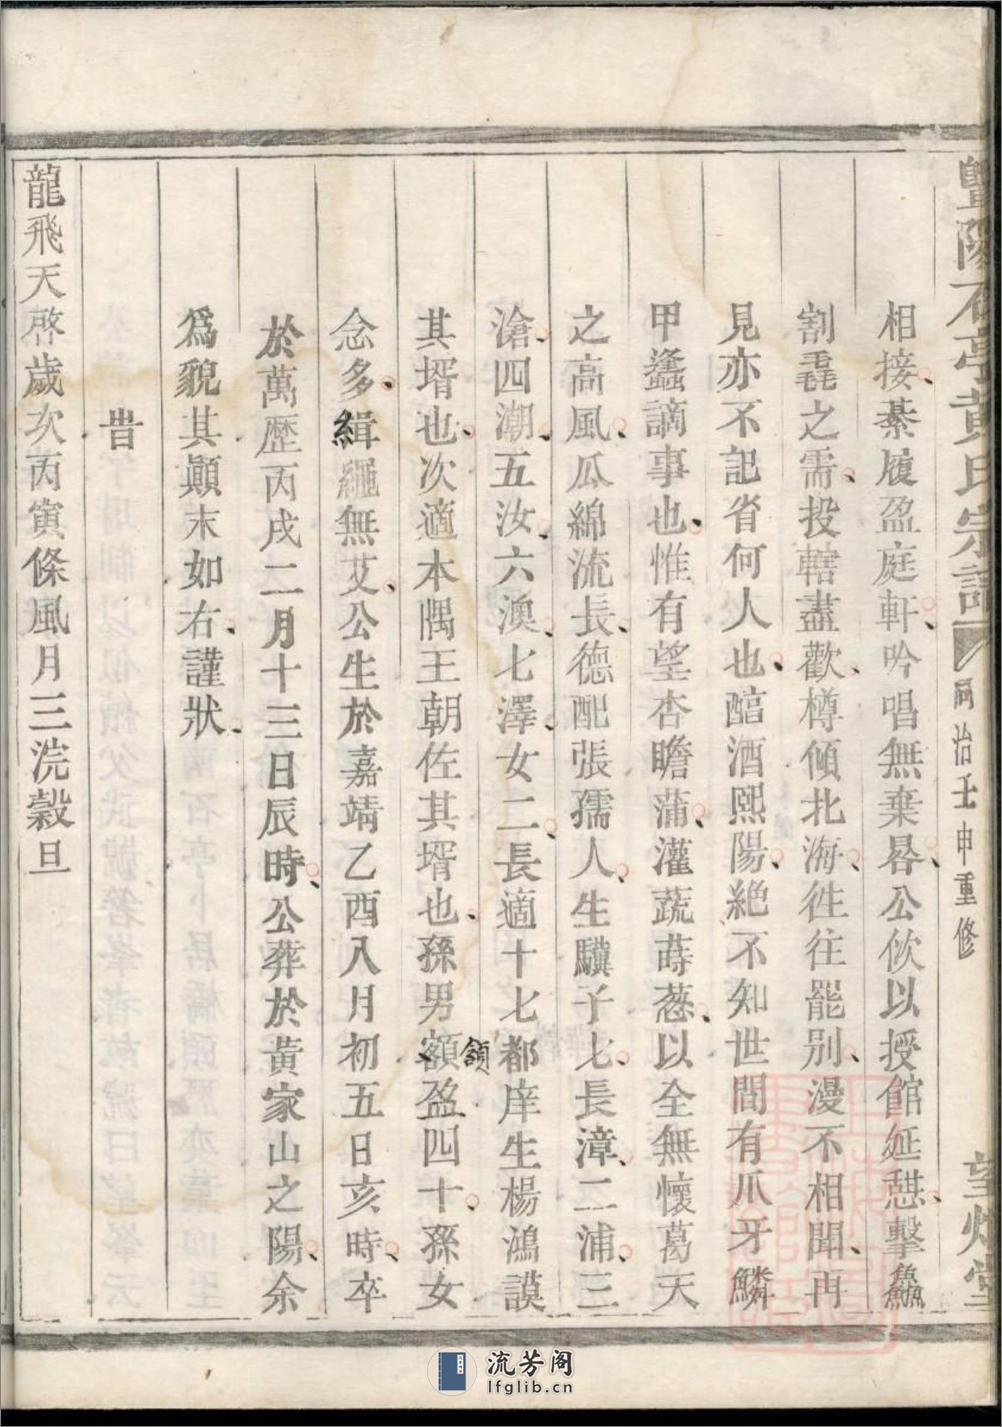 暨陽石亭黃氏宗譜 同治壬申重修 望烟堂
相接綦履盈庭軒吟唱無棄晷公佽以授館延憇擊鱻
割毳之需投轄盡歡樽傾北海徃往罷別漫不相聞再
見亦不記省何人也醅酒熙陽絶不知世間有爪牙鱗
甲蠭謫事也惟有望杏瞻蒲灌蔬蒔葱以全無懷葛天
之高風瓜綿流長德配張孺人生驥子七長漳二浦三
滄四潮五汝六澳七澤女二長適十七都庠生楊鴻謨
其壻也次適本隅王朝佐其壻也孫男額盈四十孫女
領
念多緝繩無艾公生於嘉靖乙酉八月初五日亥時卒
於萬歷丙戌二月十三日辰時公葬於黃家山之陽余
爲貌其顚末如右謹狀
旹
龍飛天啓歲次丙寅條風月三浣穀旦
流芳阁
lfglib.cn